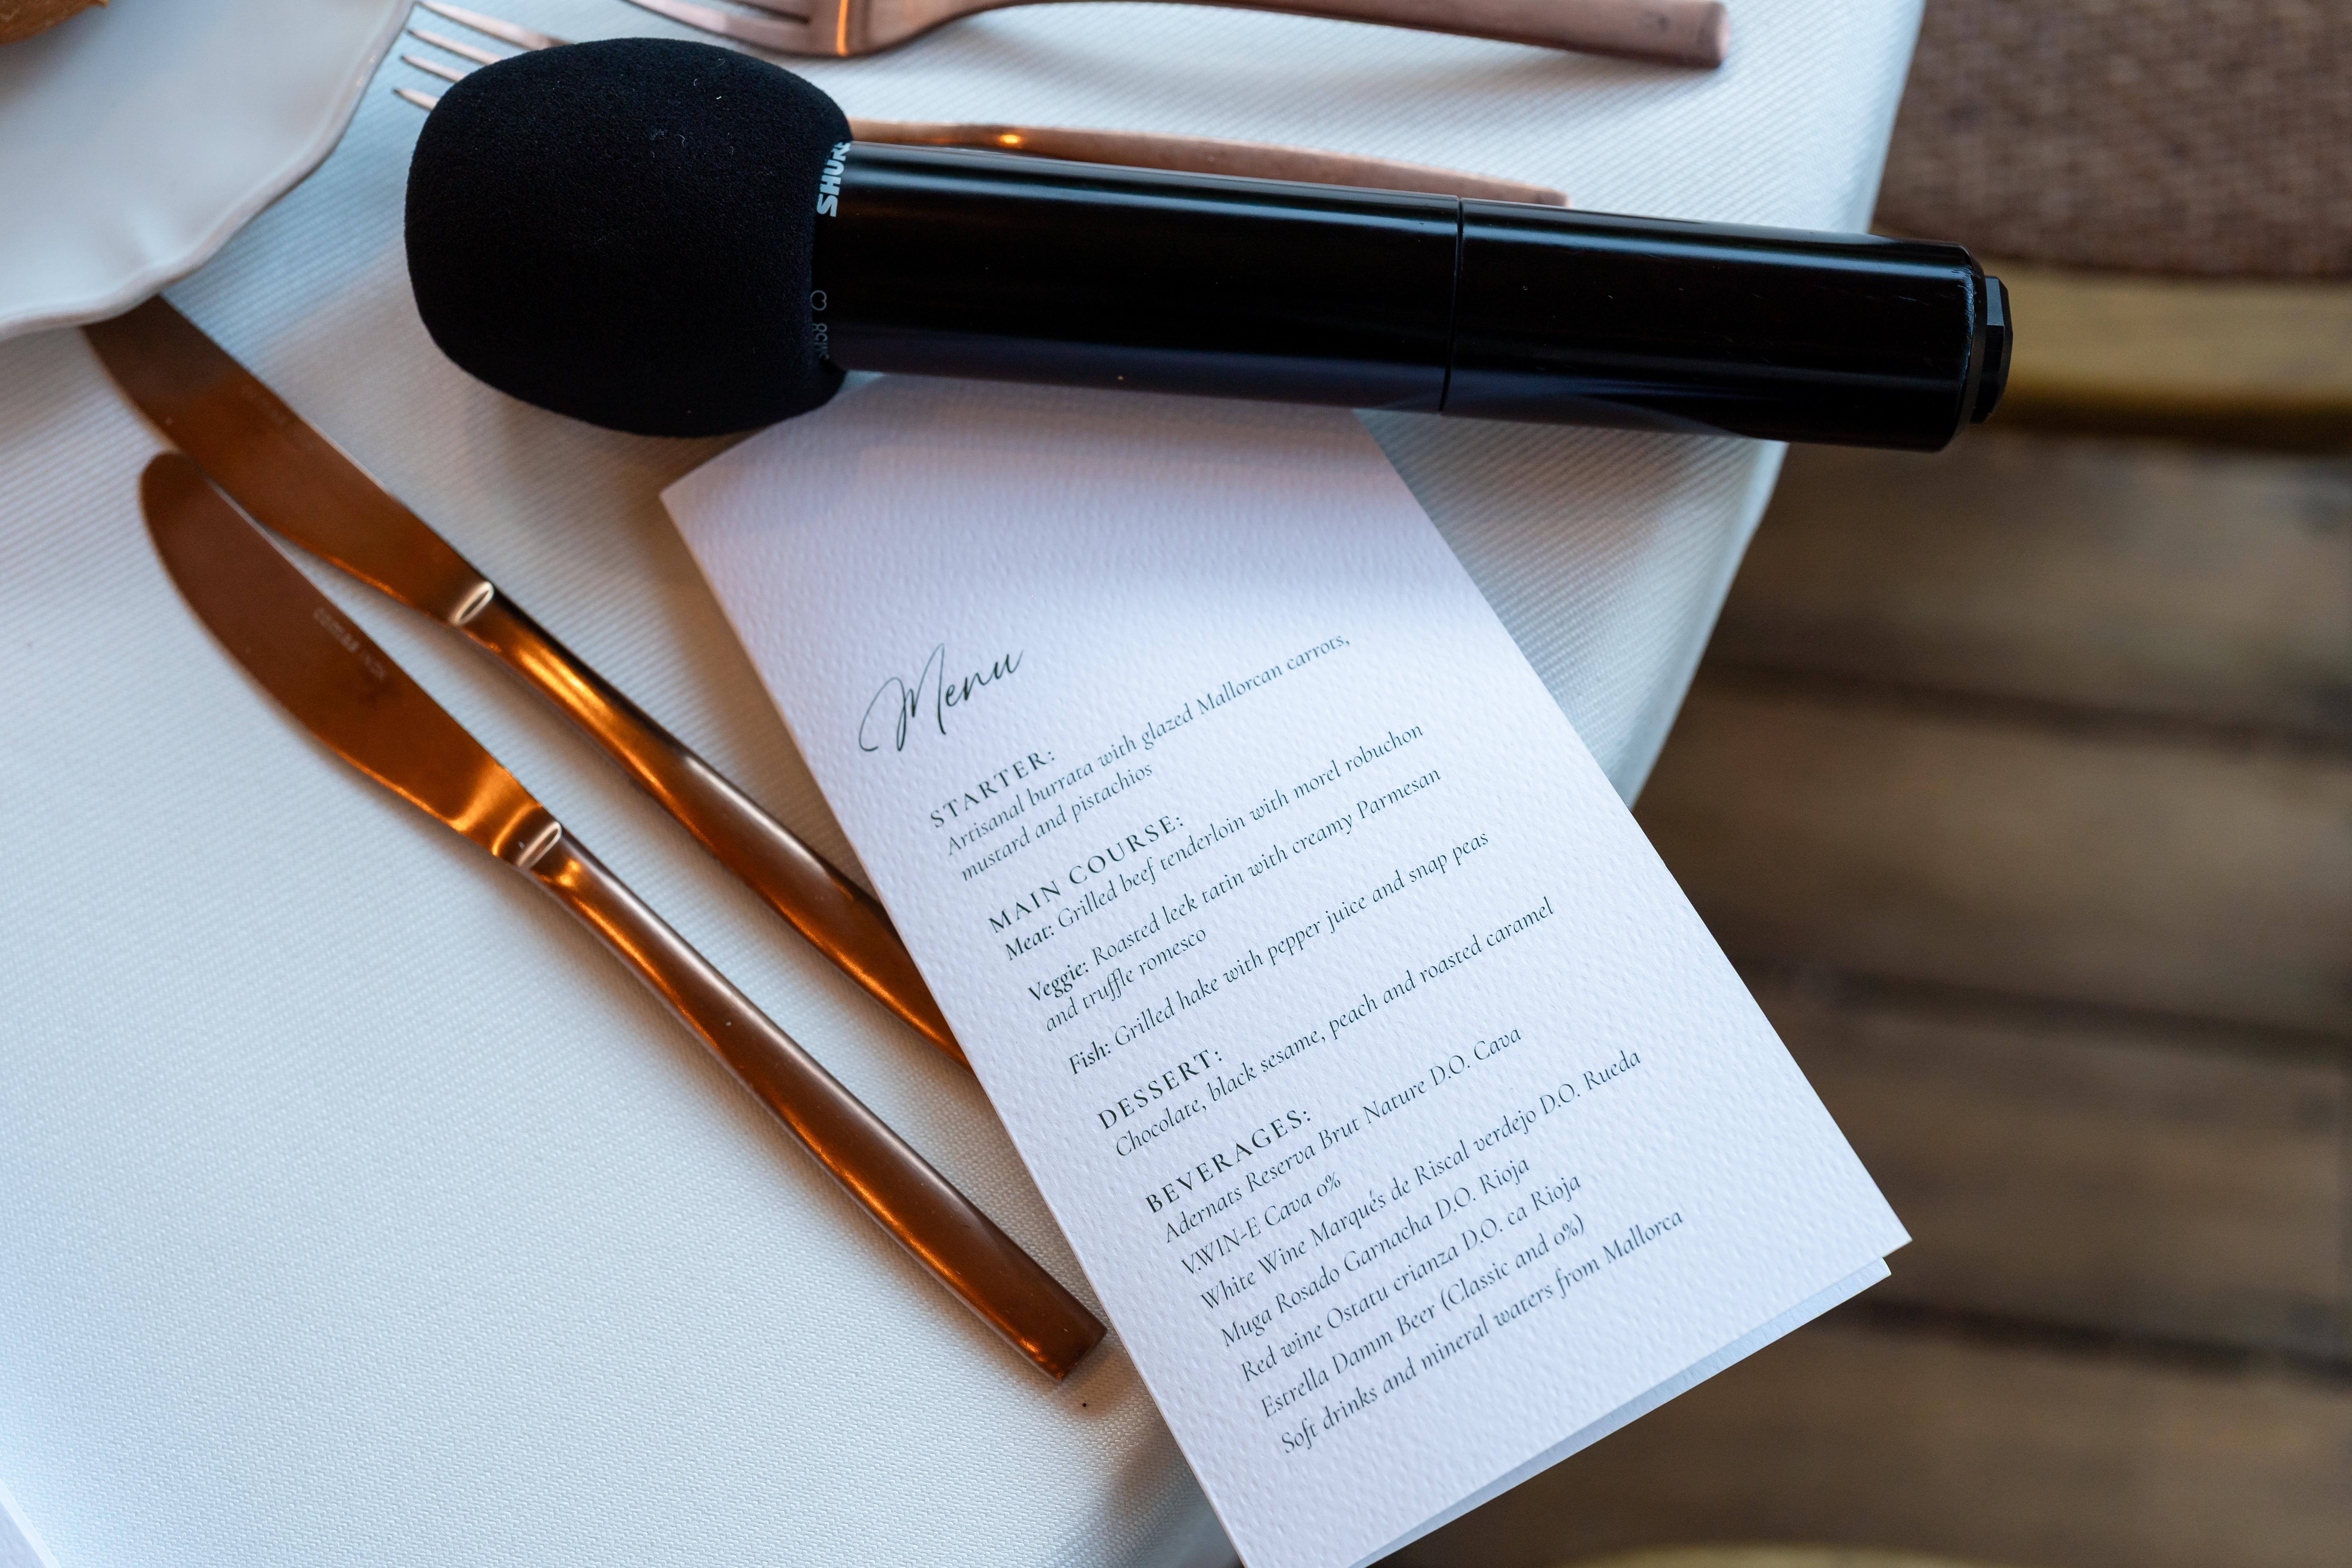 SHURE
Menu
STARTER:
Artisanal burrata with glazed Mallorcan carrots,
mustard and pistachios
MAIN COURSE:
Meat: Grilled beef tenderloin with morel robuchon
Veggie: Roasted leek tatin with creamy Parmesan
and truffle romesco
Fish: Grilled hake with pepper juice and snap peas
DESSERT:
Chocolate, black sesame, peach and roasted caramel
BEVERAGES:
Adernats Reserva Brut Nature D.O. Cava
V.WIN-E Cava 0%
White Wine Marqués de Riscal verdejo D.O. Rueda
Muga Rosado Garnacha D.O. Rioja
Red wine Ostatu crianza D.O. ca Rioja
Estrella Damm Beer (Classic and 0%)
Soft drinks and mineral waters from Mallorca